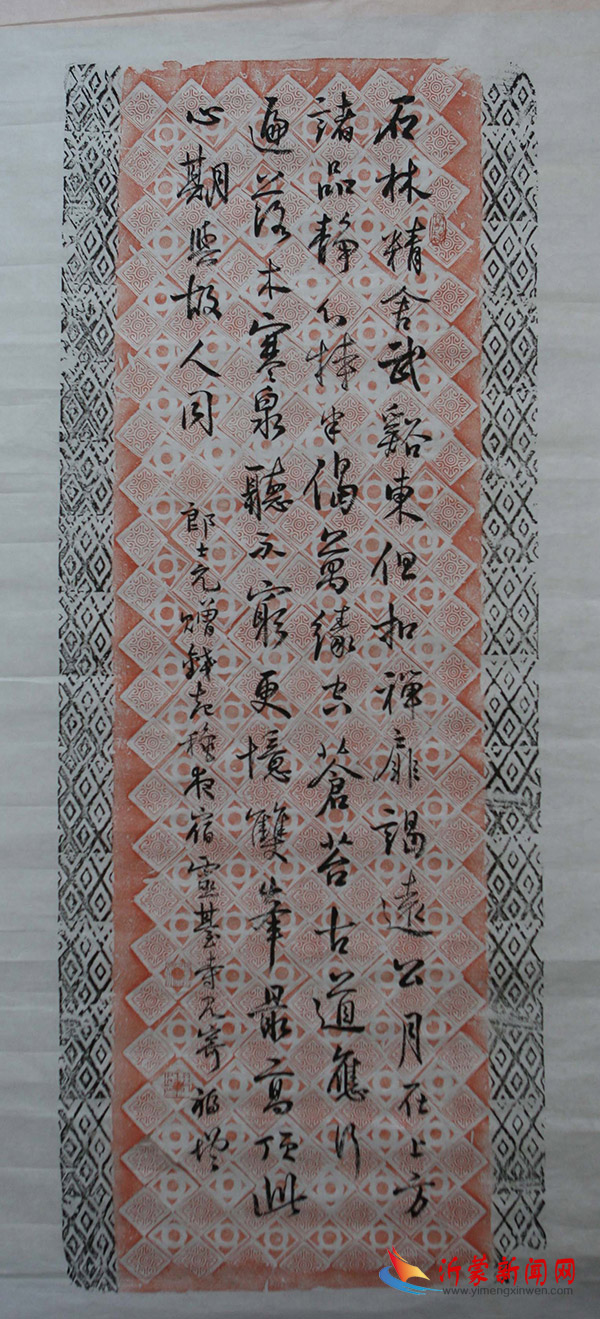 石林精舍武谿東但扣禪扉謁遠公月在上方
諸品靜心持半偈萬緣空蒼苔古道應行
遍落木寒泉聽不窮更憶雙峯最高頂此
心期與故人同
郎士元贈錢起穐夜宿靈臺寺見寄
沂蒙新闻网
www.yimengxinwen.com